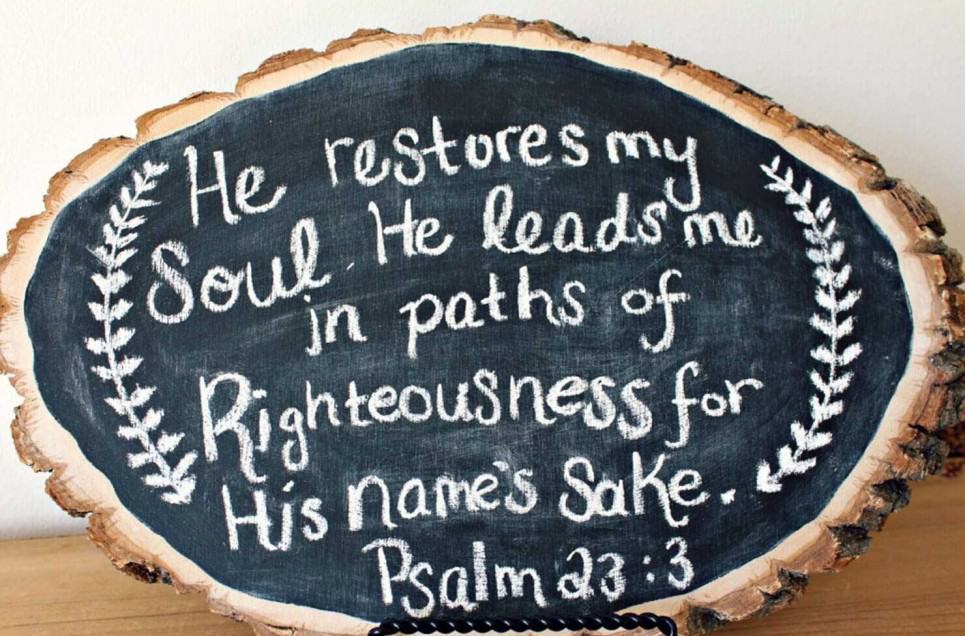 He restores my
Soul. He leads me
in paths of
Righteousness for
His name's Sake.
Psalm 23:3